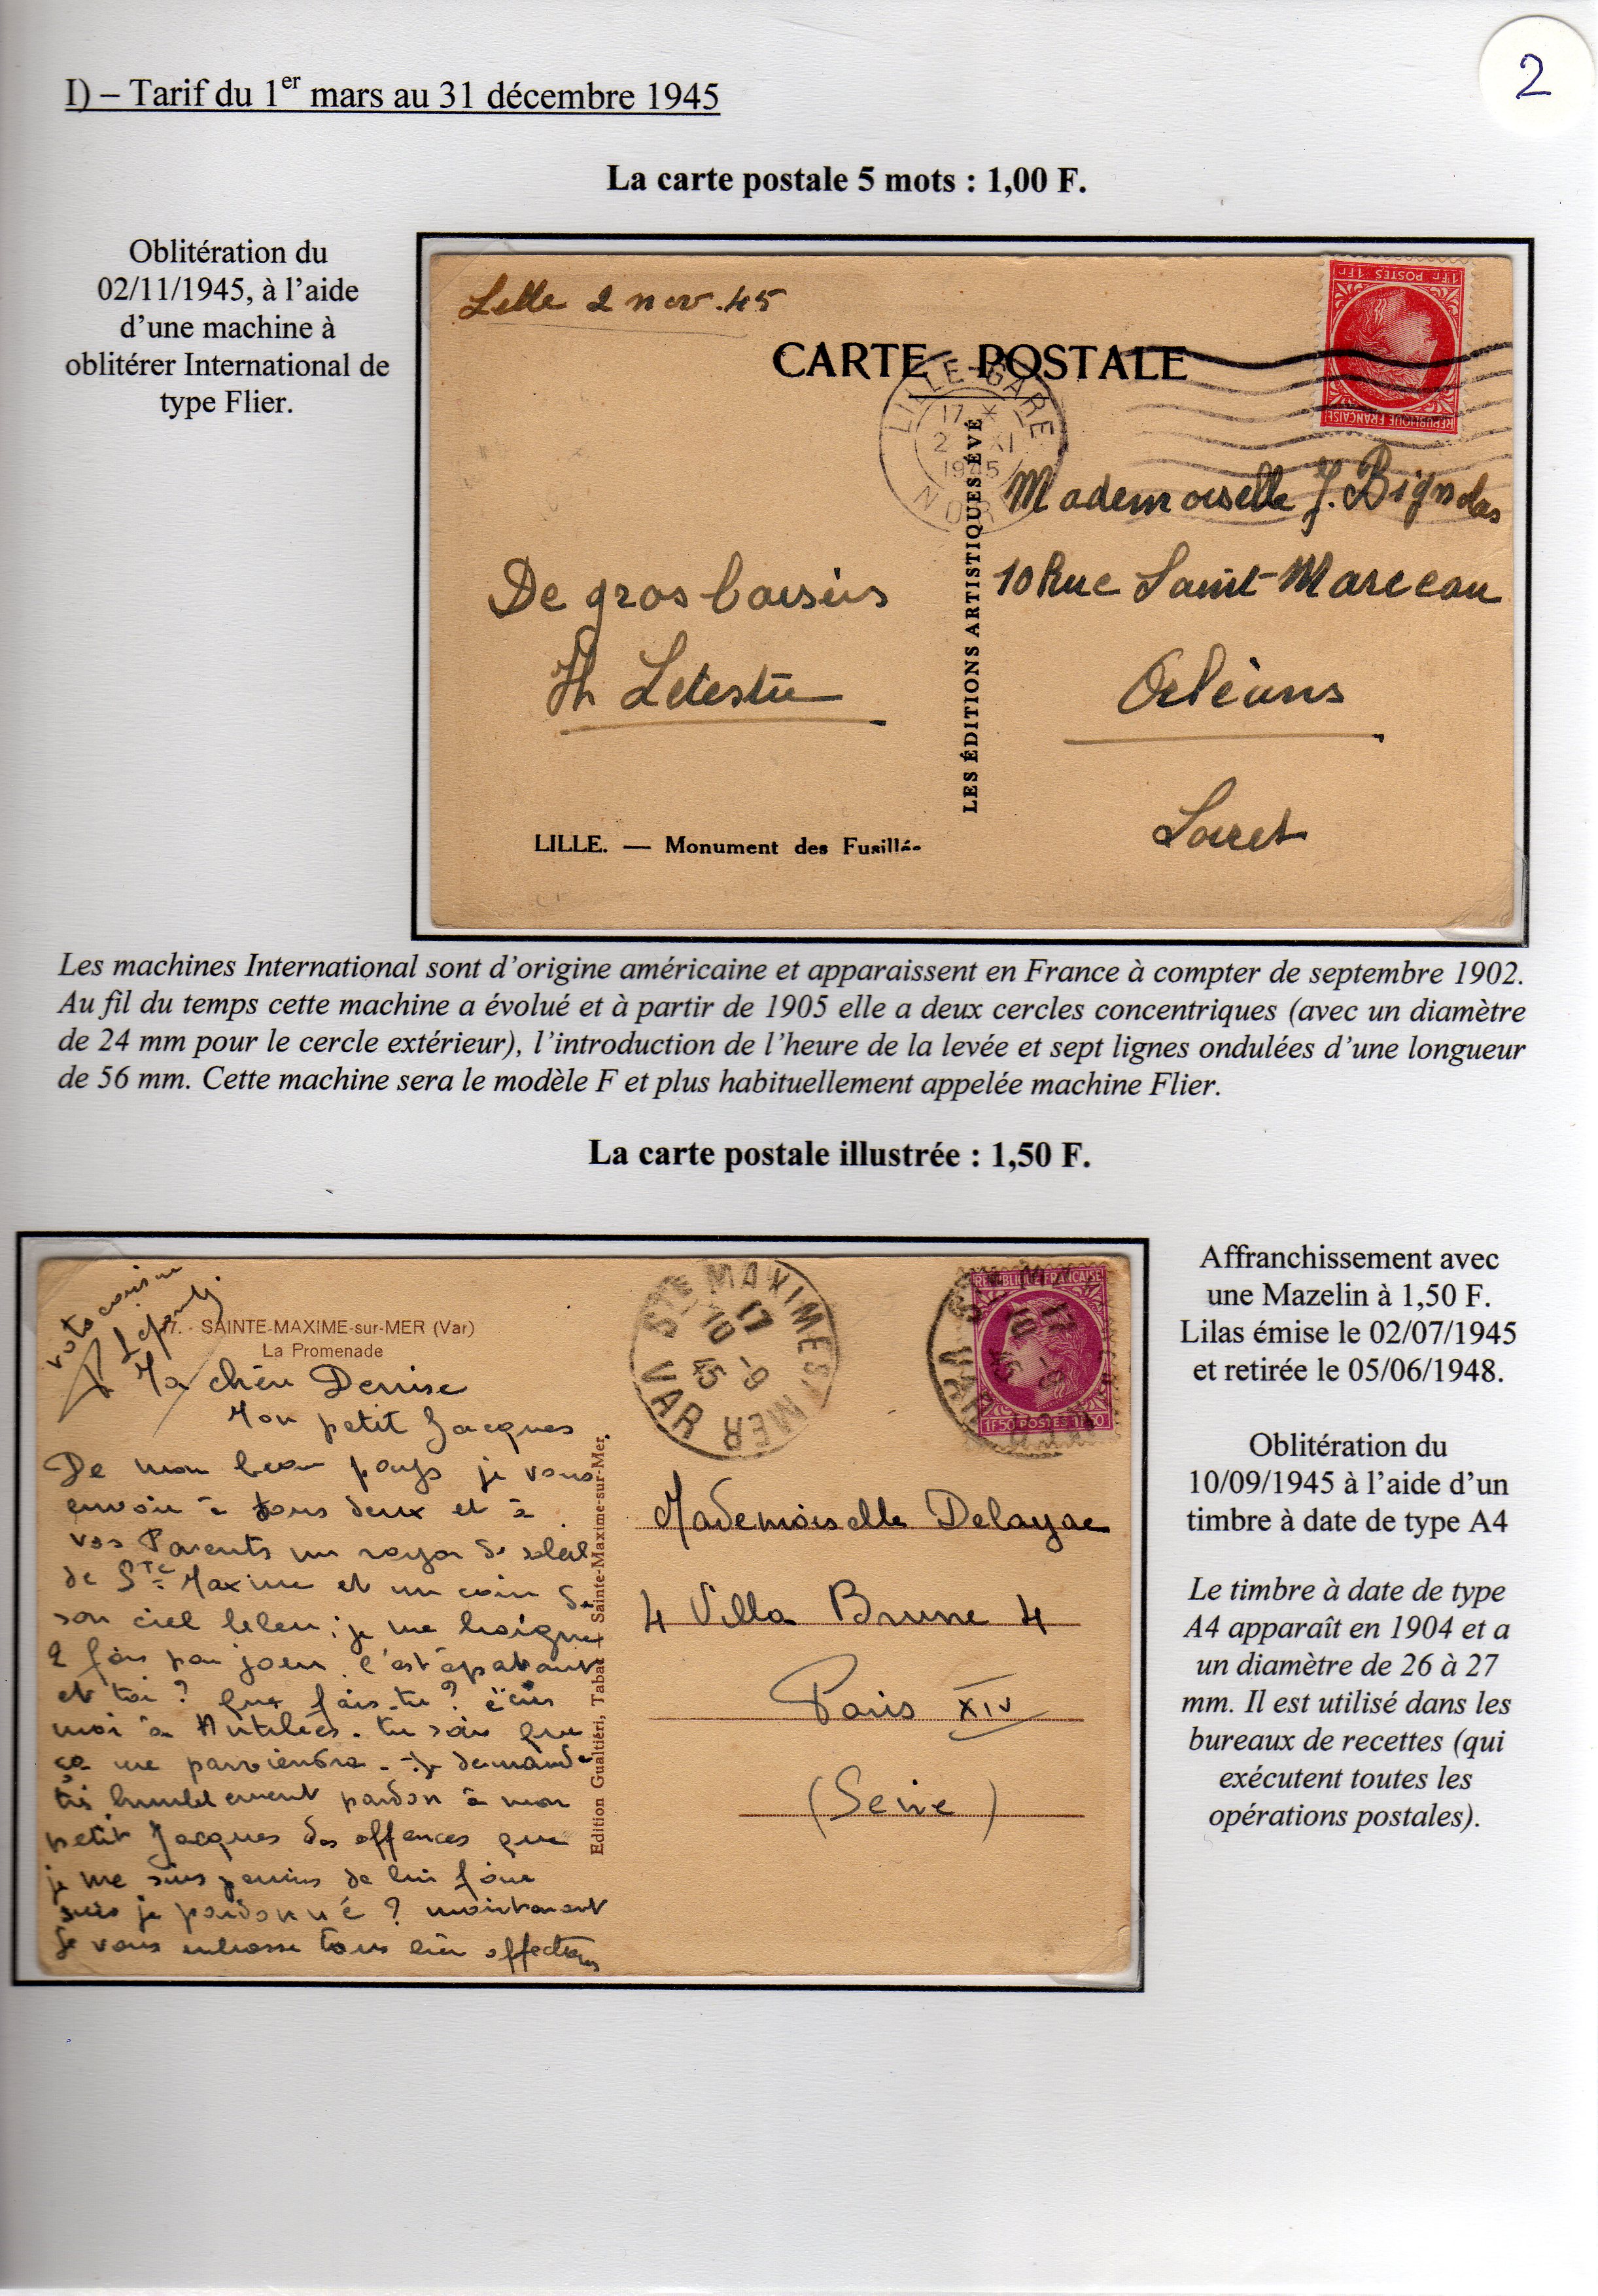 2
I) – Tarif du 1er mars au 31 décembre 1945
La carte postale 5 mots : 1,00 F.
Oblitération du
02/11/1945, à l'aide
d'une machine à
oblitérer International de
type Flier.
Lille 2 nov. 45
CARTE POSTALE
1Fr POSTES 1Fr
REPUBLIQUE FRANÇAISE
LILLE-GARE
17 *
2 XI
1945
NORD
Mademoiselle J. Bignolas
10 Rue Saint-Marceau
Orléans
Loiret
De gros baisers
Th Letestu
LES ÉDITIONS ARTISTIQUES ÉVÉ
LILLE. — Monument des Fusillés
Les machines International sont d'origine américaine et apparaissent en France à compter de septembre 1902.
Au fil du temps cette machine a évolué et à partir de 1905 elle a deux cercles concentriques (avec un diamètre
de 24 mm pour le cercle extérieur), l'introduction de l'heure de la levée et sept lignes ondulées d'une longueur
de 56 mm. Cette machine sera le modèle F et plus habituellement appelée machine Flier.
La carte postale illustrée : 1,50 F.
7. - SAINTE-MAXIME-sur-MER (Var)
La Promenade
Ma chère Denise
Mon petit Jacques
De mon beau pays je vous
envoie à tous deux et à
vos Parents un rayon de soleil
de Ste Maxime et un coin de
son ciel bleu ; je me baigne
2 fois par jour. c'est épatant
et toi ? que fais-tu ? écris
moi à Antibes. tu sais que
ça me parviendra. Je demande
très humblement pardon à mon
petit Jacques des offences que
je me suis permis de lui faire
suis je pardonné ? maintenant
Je vous embrasse tous bien
Edition Gualtiéri, Tabac Sainte-Maxime-sur-Mer.
STE MAXIME S/MER
17
10 -9
45
VAR
REPUBLIQUE FRANÇAISE
1F50 POSTES 1F50
Mademoiselle Delayae
4 Villa Brune 4
Paris XIV
(Seine)
Affranchissement avec
une Mazelin à 1,50 F.
Lilas émise le 02/07/1945
et retirée le 05/06/1948.
Oblitération du
10/09/1945 à l'aide d'un
timbre à date de type A4
Le timbre à date de type
A4 apparaît en 1904 et a
un diamètre de 26 à 27
mm. Il est utilisé dans les
bureaux de recettes (qui
exécutent toutes les
opérations postales).